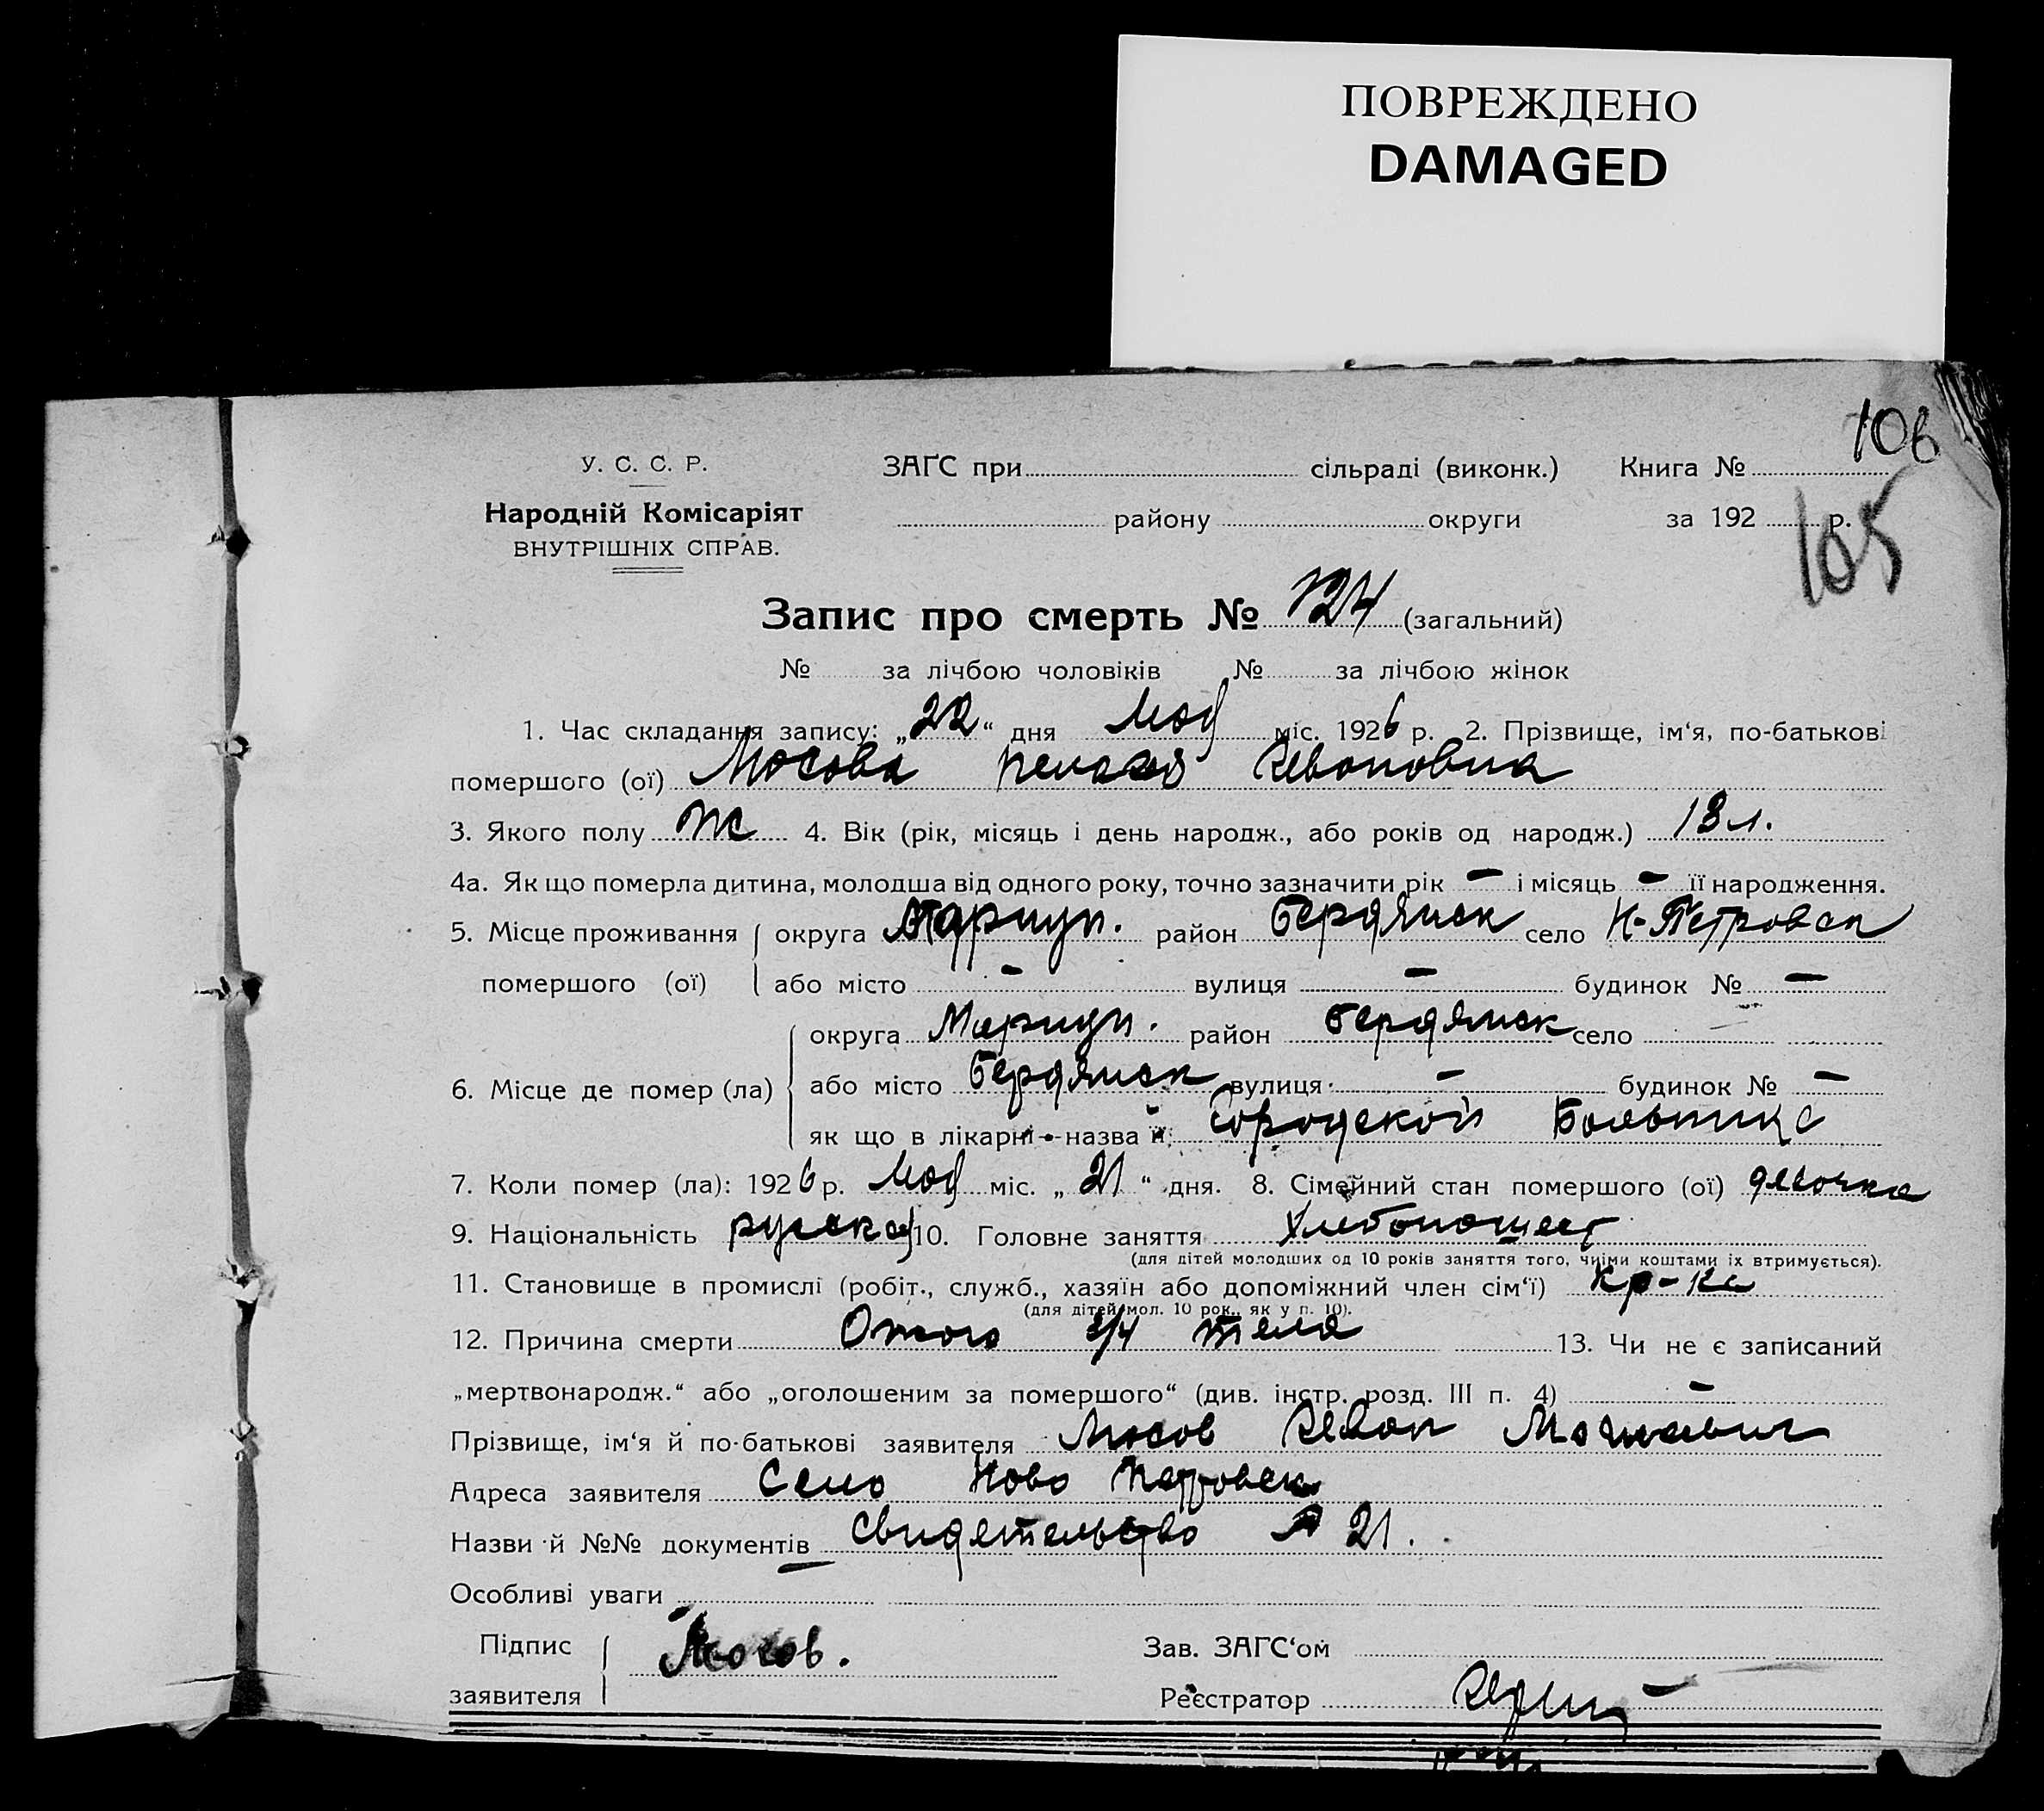 ПОВРЕЖДЕНО
DAMAGED
106
У. С. С. Р.
ЗАҐС при сільраді (виконк.) Книга №
Народній Комісаріят
ВНУТРІШНІХ СПРАВ.
району округи за 192 р.
105
Запис про смерть № 124 (загальний)
№ за лічбою чоловіків № за лічбою жінок
1. Час складання запису: „22“ дня мая міс. 1926 р. 2. Прізвище, ім‘я, по-батькові
помершого (ої) Мосова Пелагея
3. Якого полу ж 4. Вік (рік, місяць і день народж., або років од народж.) 13 л.
4а. Як що померла дитина, молодша від одного року, точно зазначити рік – і місяць – її народження.
5. Місце проживання округа Мариуп. район Бердянск село Н-Петровск
помершого (ої) або місто – вулиця – будинок № –
округа Мариуп. район Бердянск село
6. Місце де помер (ла) або місто Бердянск вулиця – будинок № –
як що в лікарні - назва її: Городской Больнице
7. Коли помер (ла): 1926 р. мая міс. „21“ дня. 8. Сімейний стан помершого (ої) девочка
9. Національність русская 10. Головне заняття Хлебопашест
(для дітей молодших од 10 років заняття того, чиїми коштами їх втримується).
11. Становище в промислі (робіт., служб., хазяїн або допоміжний член сім‘ї) кр-ка
(для дітей мол. 10 рок., як у п. 10).
12. Причина смерти Ожого 3/4 тела 13. Чи не є записаний
„мертвонародж.“ або „оголошеним за помершого“ (див. інстр. розд. III п. 4) –
Прізвище, ім‘я й по-батькові заявителя Мосов
Адреса заявителя Село Ново Петровск
Назви й №№ документів Свидетельство № 21.
Особливі уваги
Підпис Мосов. Зав. ЗАҐС‘ом
заявителя Реєстратор